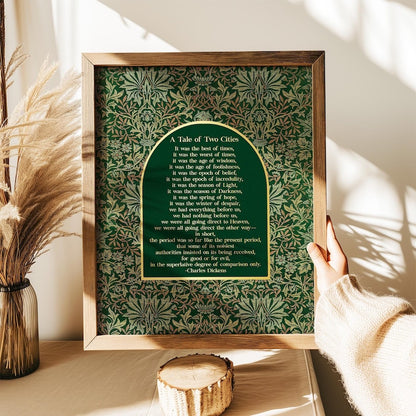 A Tale of Two Cities
It was the best of times,
it was the worst of times,
it was the age of wisdom,
it was the age of foolishness,
it was the epoch of belief,
it was the epoch of incredulity,
it was the season of Light,
it was the season of Darkness,
it was the spring of hope,
it was the winter of despair,
we had everything before us,
we had nothing before us,
we were all going direct to heaven,
we were all going direct the other way—
in short,
the period was so far like the present period,
that some of its noisiest
authorities insisted on its being received,
for good or for evil,
in the superlative degree of comparison only.
-Charles Dickens